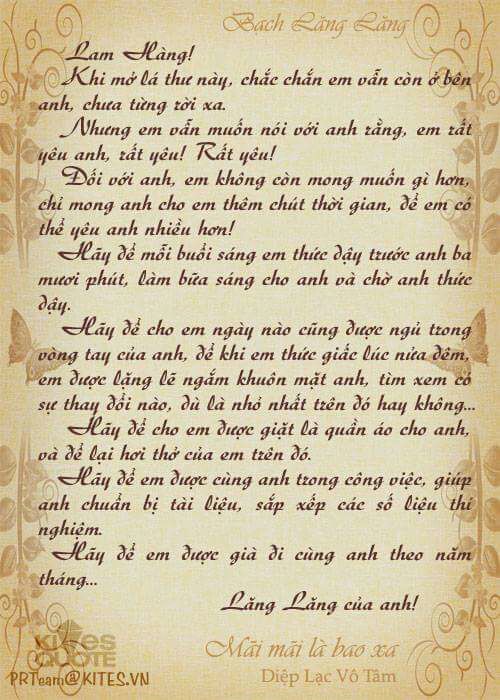 Bạch Lăng Lăng
Lam Hàng!
Khi mở lá thư này, chắc chắn em vẫn còn ở bên
anh, chưa từng rời xa.
Nhưng em vẫn muốn nói với anh rằng, em rất
yêu anh, rất yêu! Rất yêu!
Đối với anh, em không còn mong muốn gì hơn,
chỉ mong anh cho em thêm chút thời gian, để em có
thể yêu anh nhiều hơn!
Hãy để mỗi buổi sáng em thức dậy trước anh ba
mươi phút, làm bữa sáng cho anh và chờ anh thức
dậy.
Hãy để cho em ngày nào cũng được ngủ trong
vòng tay của anh, để khi em thức giấc lúc nửa đêm,
em được lặng lẽ ngắm khuôn mặt anh, tìm xem có
sự thay đổi nào, dù là nhỏ nhất trên đó hay không...
Hãy để cho em được giặt là quần áo cho anh,
và để lại hơi thở của em trên đó.
Hãy để em được cùng anh trong công việc, giúp
anh chuẩn bị tài liệu, sắp xếp các số liệu thí
nghiệm.
Hãy để em được già đi cùng anh theo năm
tháng...
Lăng Lăng của anh!
KITES
QUOTE
PRTeam@KITES.VN
Mãi mãi là bao xa
Diệp Lạc Vô Tâm